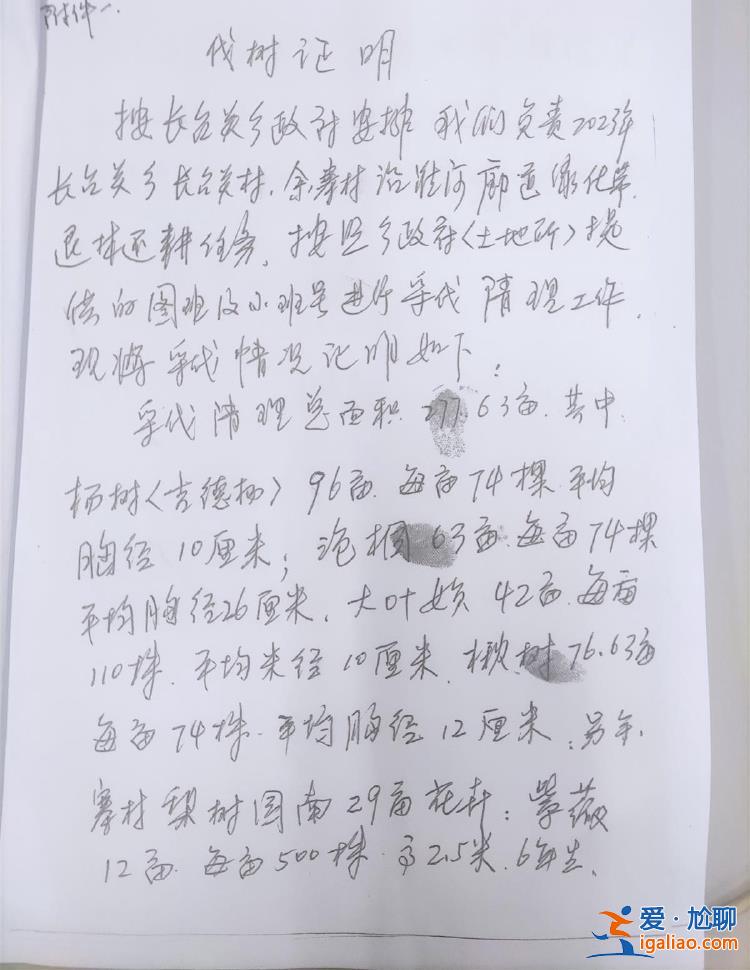 附件一.
伐树证明
按长台关乡政府安排 我们负责2023年
长台关乡长台关村.余寨村沿淮河廊道绿化带.
退林还耕任务,按照乡政府(土地所)提
供的图班及小班号进行采伐清理工作.
现将采伐情况证明如下:
采伐清理总面积 277.63亩.其中.
杨树(吉德杨)96亩.每亩74棵.平均
胸径10厘米;泡桐63亩.每亩74棵
平均胸径26厘米.大叶女贞42亩.每亩
110株.平均米径10厘米.楸树76.63亩
每亩74株.平均胸径12厘米.另余.
寨村梨树园南29亩花卉:紫薇
12亩.每亩500株.高2.5米.6年生.
爱·尬聊
igaliao.com